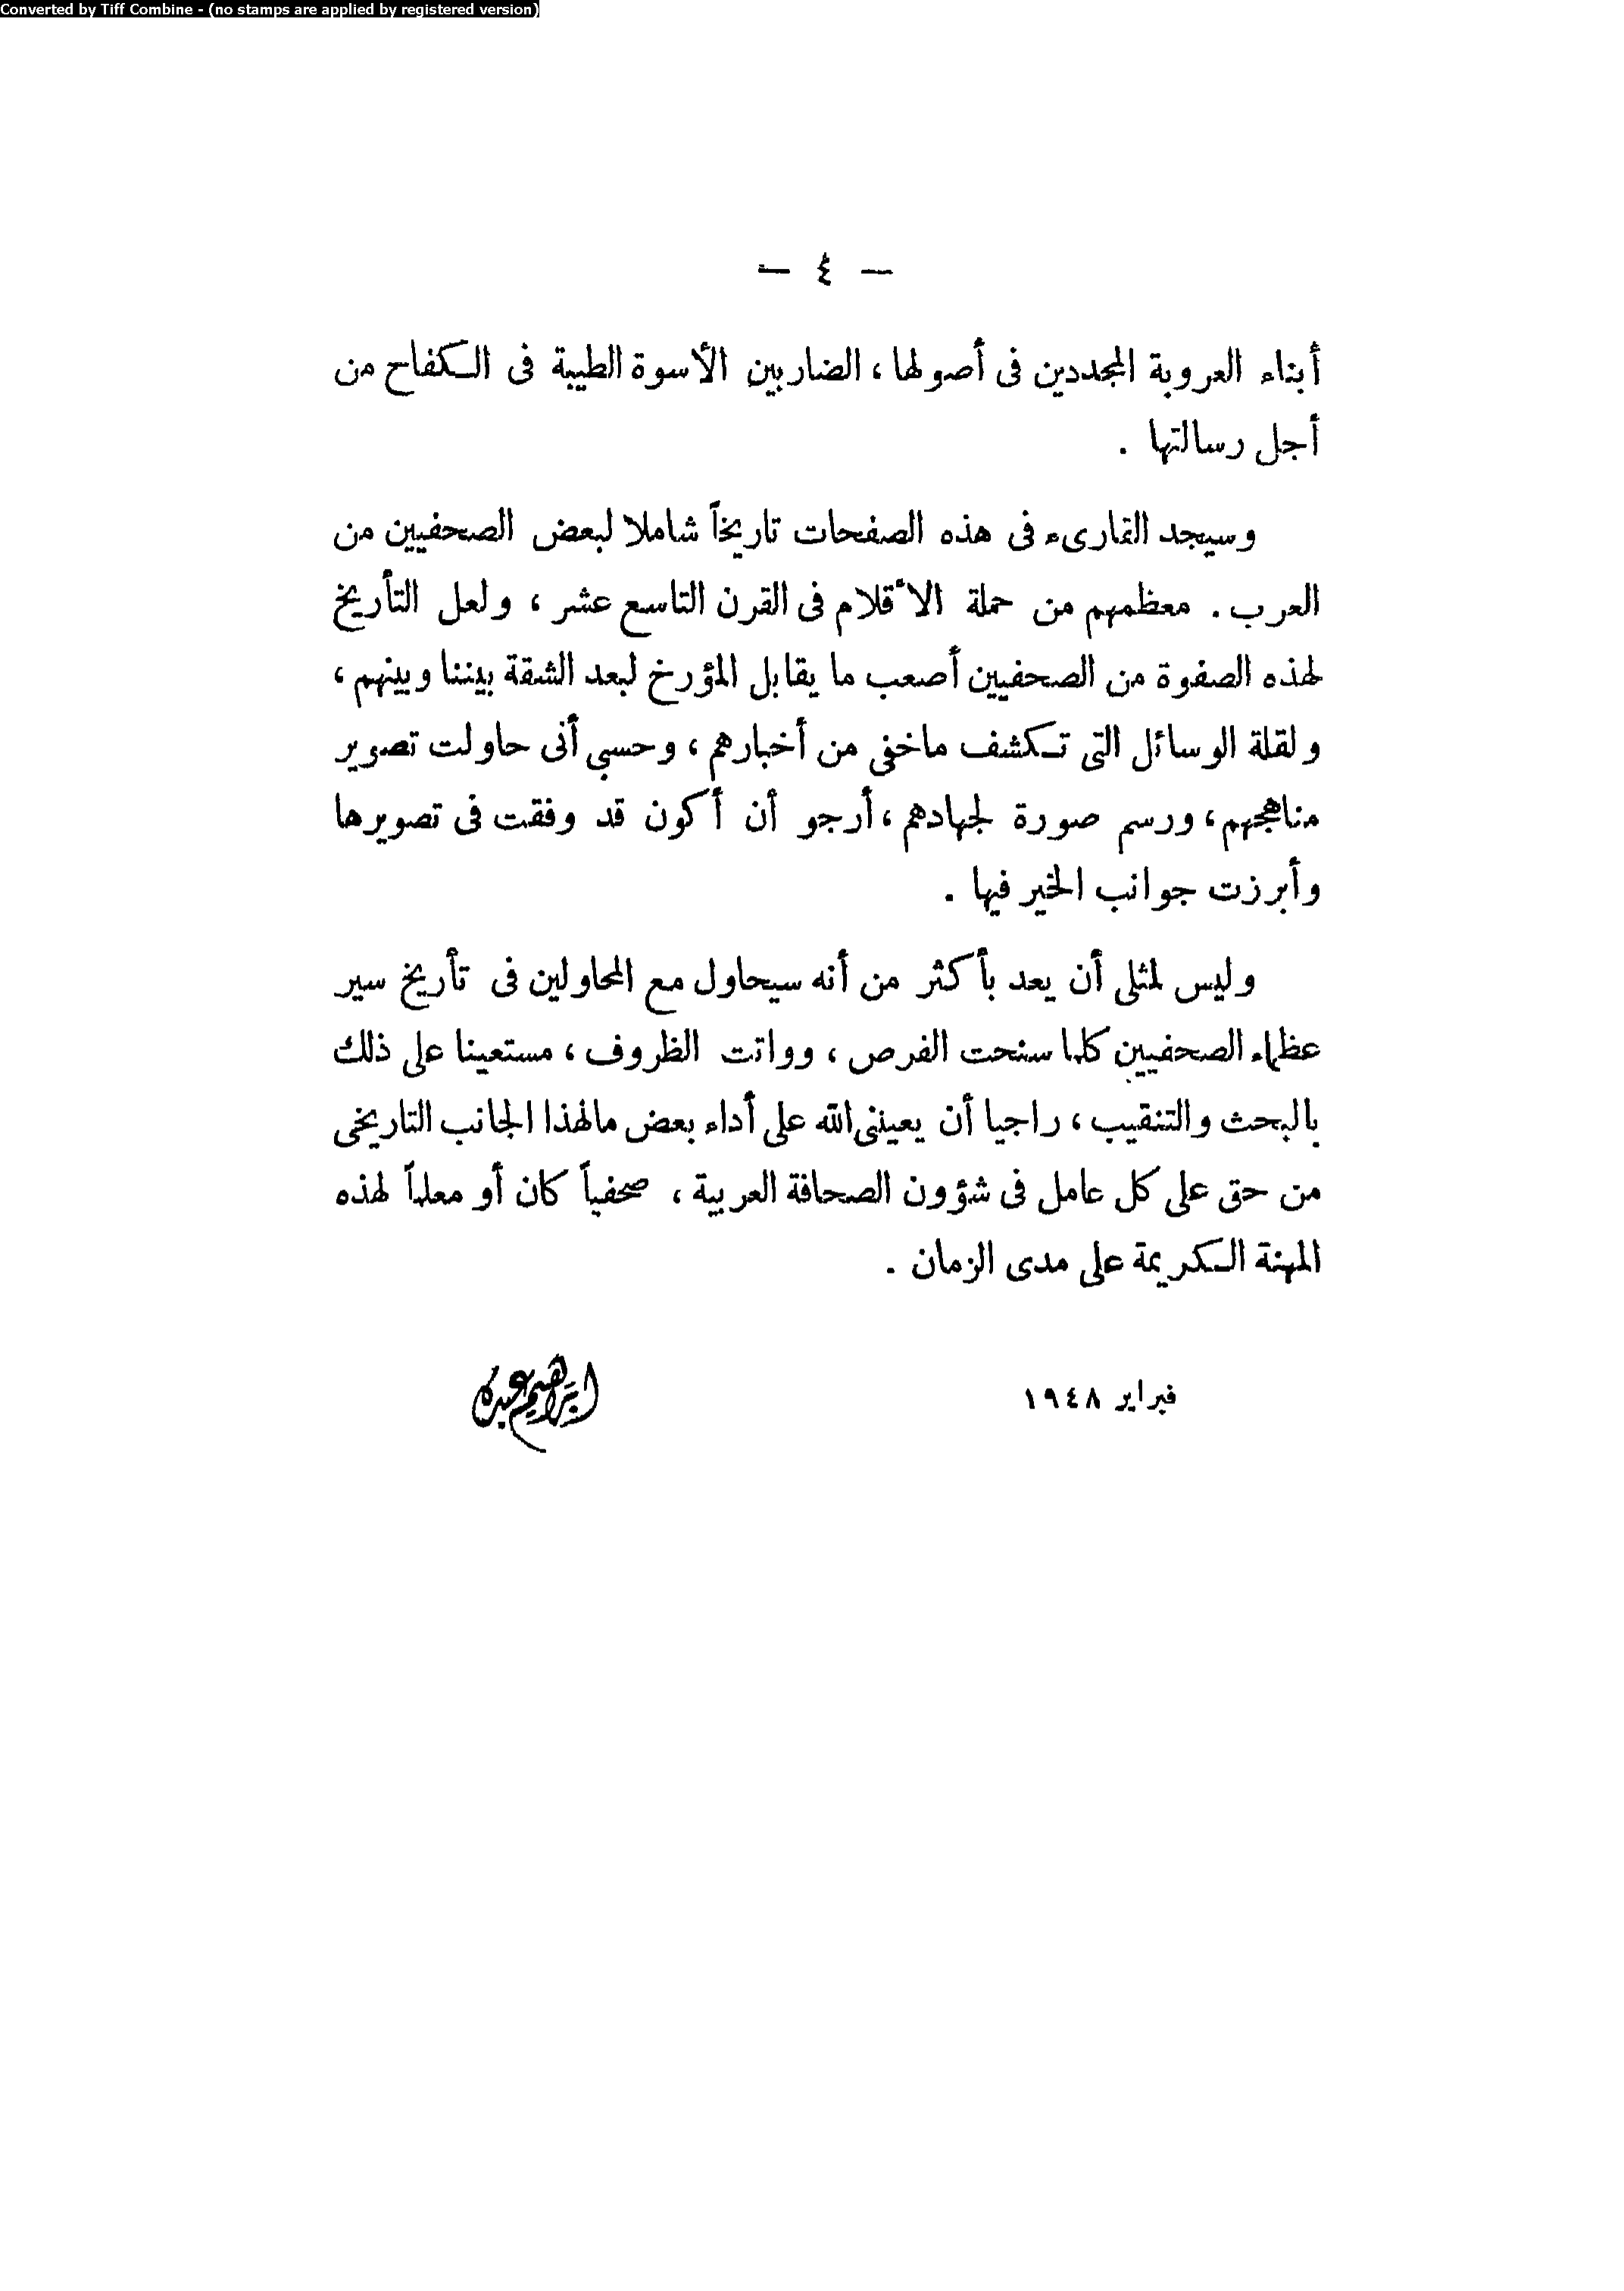 Converted by Tiff Combine - (no stamps are applied by registered version)
— ٤ —
أبناء العروبة المجددين فى أصولها ، الضاربين الأسوة الطيبة فى الكفاح من
أجل رسالتها .
وسيجد القارىء فى هذه الصفحات تاريخاً شاملا لبعض الصحفيين من
العرب . معظمهم من حملة الأقلام فى القرن التاسع عشر ، ولعل التأريخ
لهذه الصفوة من الصحفيين أصعب ما يقابل المؤرخ لبعد الشقة بيننا وبينهم ،
ولقلة الوسائل التى تكشف ماخفى من أخبارهم ، وحسبي أنى حاولت تصوير
مناهجهم ، ورسم صورة لجهادهم ، أرجو أن أكون قد وفقت فى تصويرها
وأبرزت جوانب الخير فيها .
وليس لمثلى أن يعد بأكثر من أنه سيحاول مع المحاولين فى تأريخ سير
عظماء الصحفيين كلما سنحت الفرص ، وواتت الظروف ، مستعينا على ذلك
بالبحث والتنقيب ، راجيا أن يعيننى الله على أداء بعض مالهذا الجانب التاريخى
من حق على كل عامل فى شؤون الصحافة العربية ، صحفياً كان أو معلماً لهذه
المهنة الكريمة على مدى الزمان .
فبراير ١٩٤٨
ابراهيم عبده